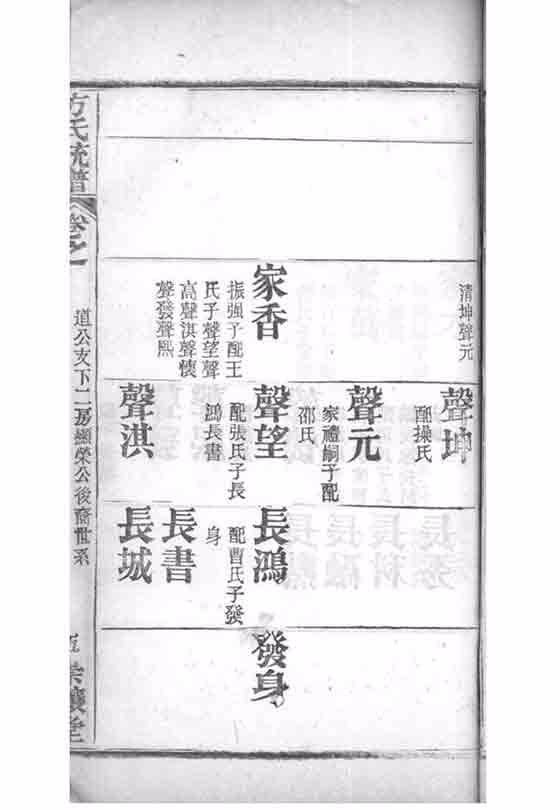 清坤聲元
家香
振強子配王
氏子聲望聲
高聲淇聲懷
聲發聲熙
聲坤
配操氏
聲元
家禮嗣子配
邵氏
聲望
配張氏子長
鴻長書
聲淇
長鴻
配曹氏子發
身
長書
長城
發身
方氏統譜
卷之一
道公支下二房顯榮公後裔世系